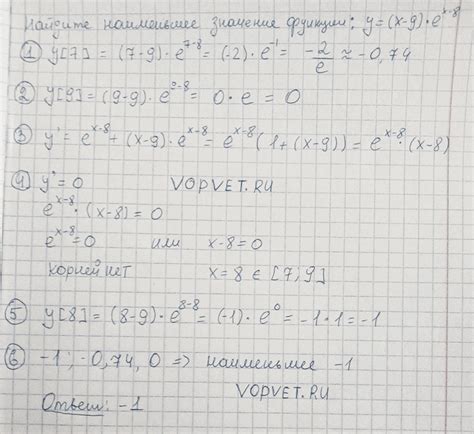 Найдите наименьшее значение функции: y=(x-9)·e^(x-8)
① y[7] = (7-9)·e^(7-8) = (-2)·e^(-1) = -2/e ≈ -0,74
② y[9] = (9-9)·e^(9-8) = 0·e = 0
③ y' = e^(x-8) + (x-9)·e^(x-8) = e^(x-8)(1+(x-9)) = e^(x-8)·(x-8)
④ y' = 0 VOPVET.RU
e^(x-8)·(x-8) = 0
e^(x-8) = 0 или x-8=0
корней нет x=8 ∈ [7;9]
⑤ y[8] = (8-9)·e^(8-8) = (-1)·e^0 = -1·1 = -1
⑥ -1; -0,74, 0 => наименьшее -1
VOPVET.RU
Ответ: -1